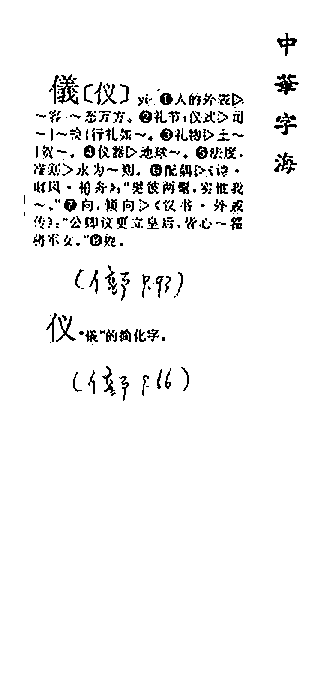 中華字海
儀〔仪〕 yí ❶人的外表▷
～容｜～态万方。❷礼节;仪式▷司
～｜～换｜行礼如～。❸礼物▷土～
｜贺～。❹仪器▷地球～。❺法度,
准则▷水为～则。❻配偶▷《诗·
鄘风·柏舟》:"髧彼两髦,实惟我
～。"❼向,倾向▷《汉书·外戚
传》:"公卿议更立皇后,皆心～霍
将军女。"❽姓。
(亻部 P.93)
仪 "儀"的简化字。
(亻部 P.66)